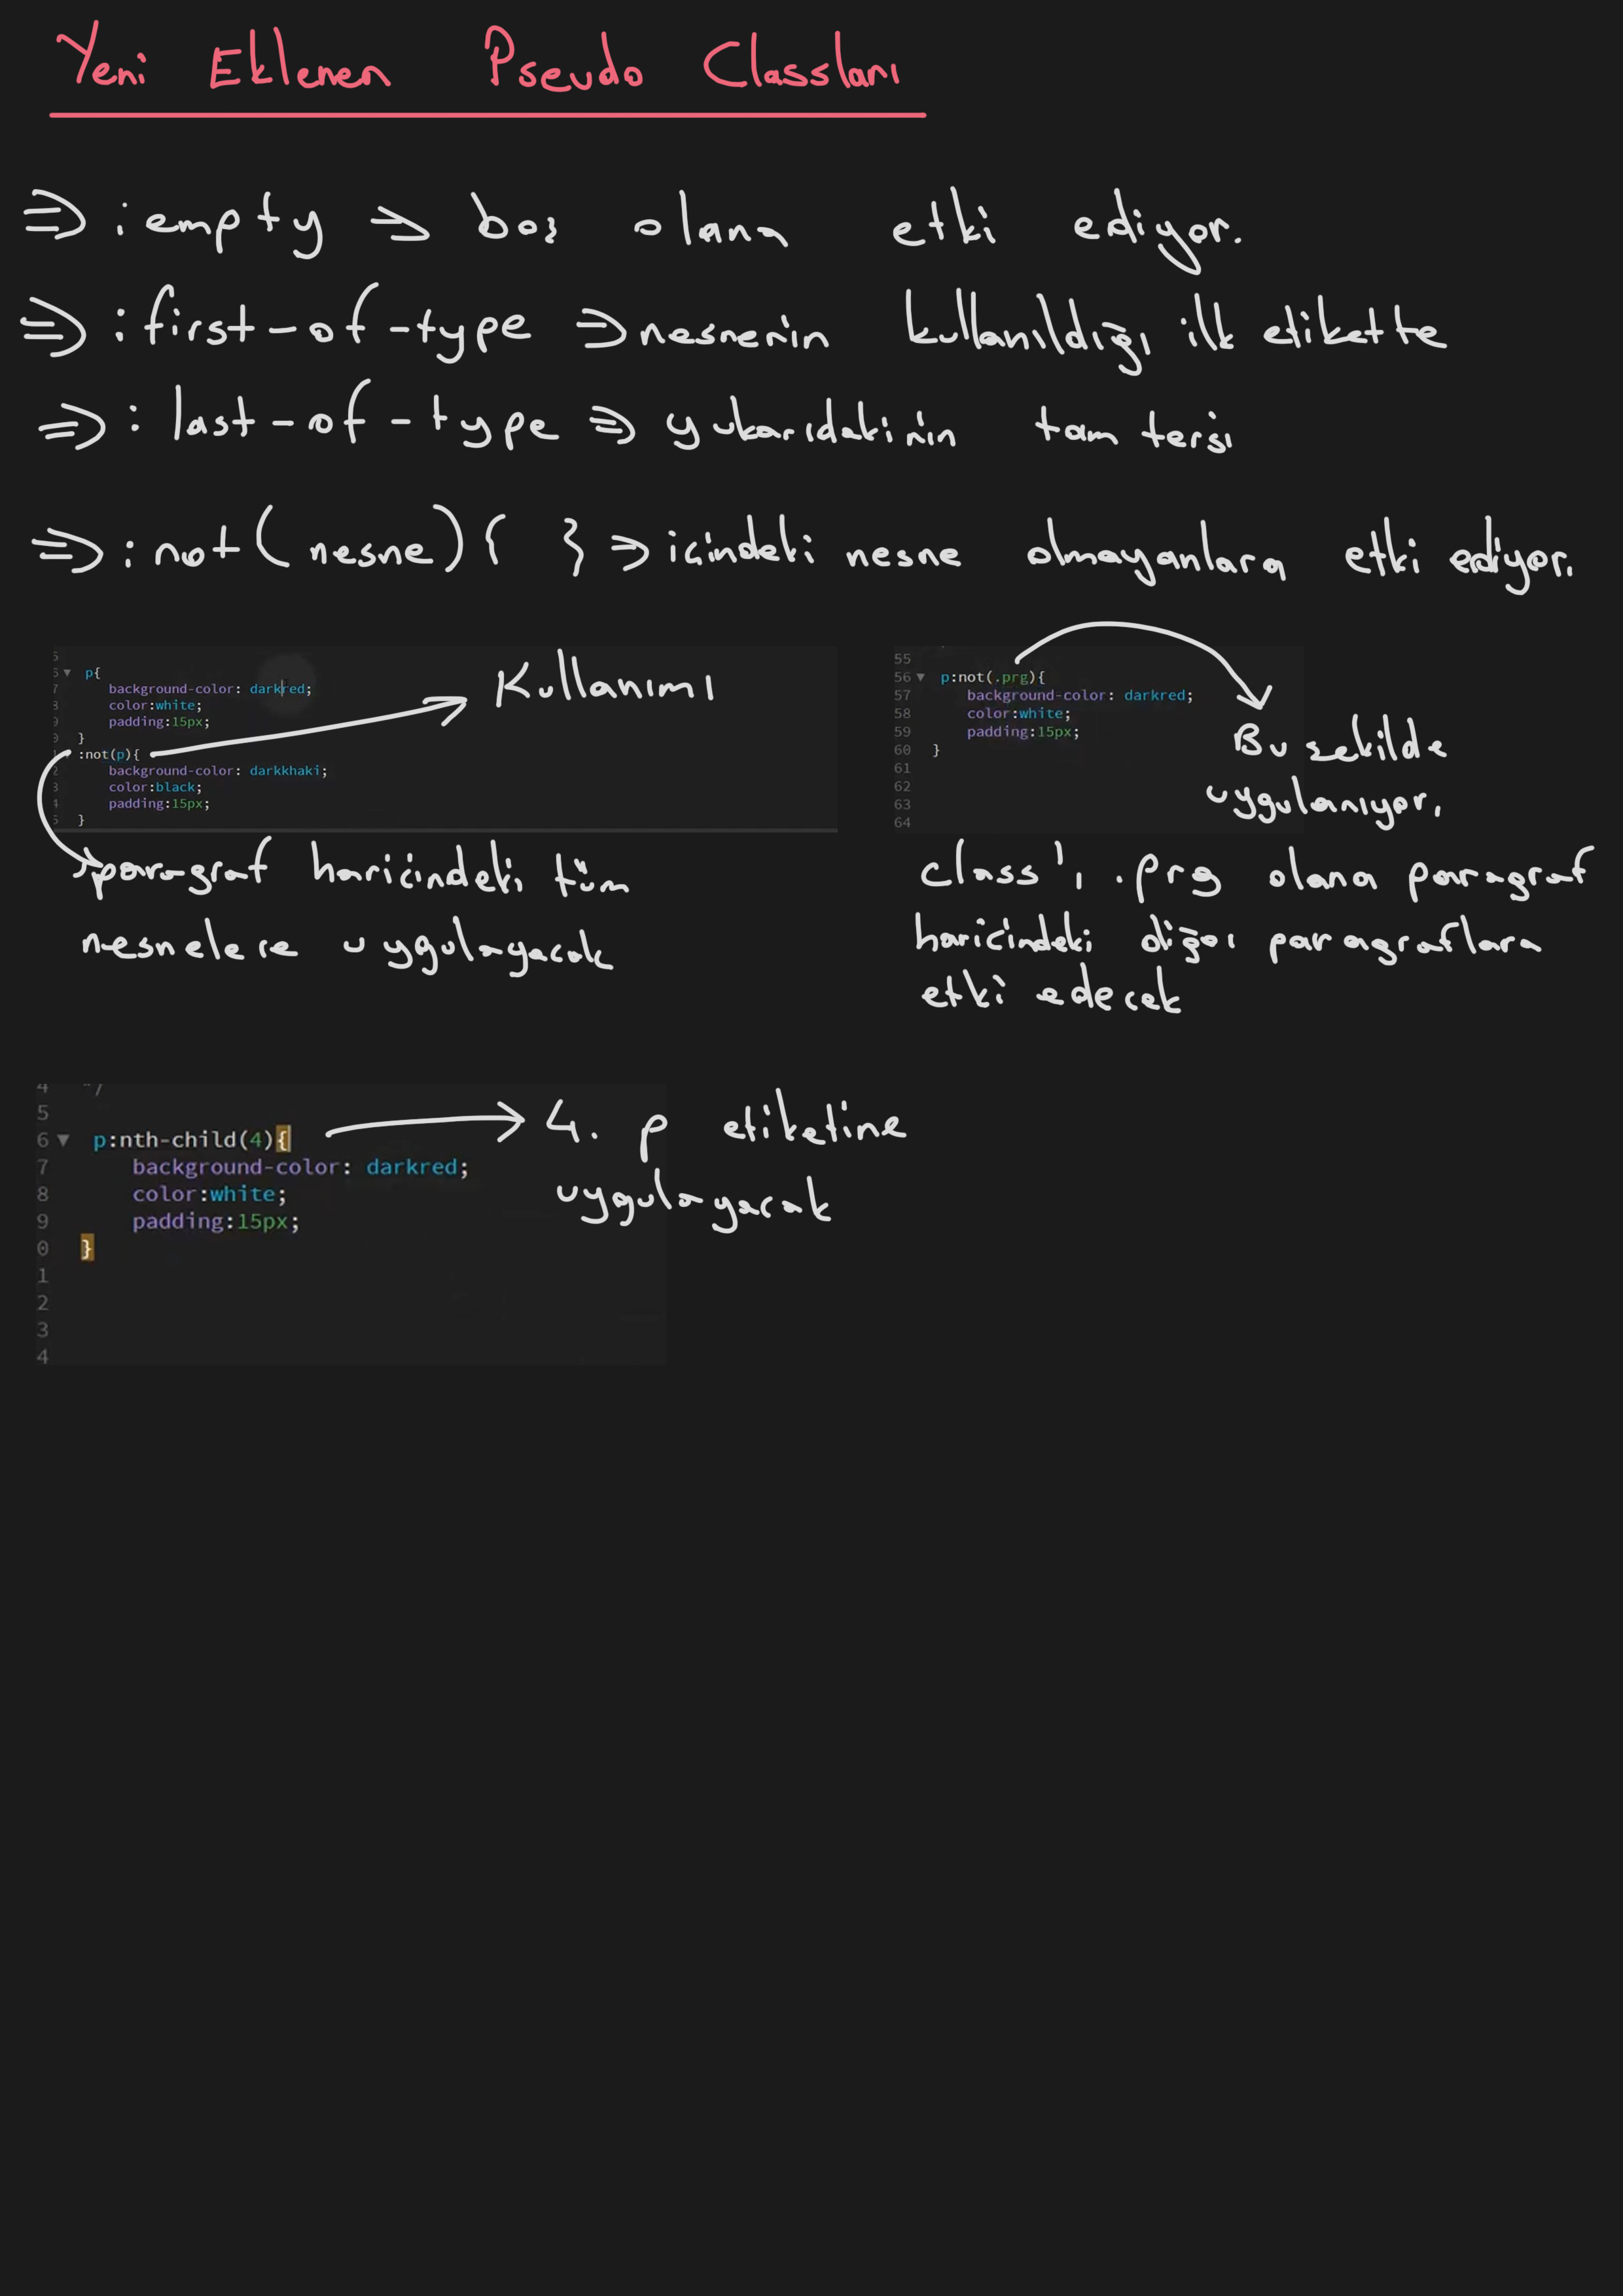 Yeni Eklenen Pseudo Classları
⇒ :empty ⇒ boş olana etki ediyor.
⇒ :first-of-type ⇒ nesnenin kullanıldığı ilk etikette
⇒ :last-of-type ⇒ yukarıdakinin tam tersi
⇒ :not(nesne){ } ⇒ içindeki nesne olmayanlara etki ediyor.
5
6 ▼ p{
7 background-color: darkred;
8 color:white;
9 padding:15px;
0 }
:not(p){
2 background-color: darkkhaki;
3 color:black;
4 padding:15px;
5 }
Kullanımı
paragraf haricindeki tüm
nesnelere uygulayacak
55
56 ▼ p:not(.prg){
57 background-color: darkred;
58 color:white;
59 padding:15px;
60 }
61
62
63
64
Bu şekilde
uygulanıyor.
class'ı .prg olana paragraf
haricindeki diğer paragraflara
etki edecek
4 */
5
6 ▼ p:nth-child(4){
7 background-color: darkred;
8 color:white;
9 padding:15px;
0 }
1
2
3
4
4. p etiketine
uygulayacak